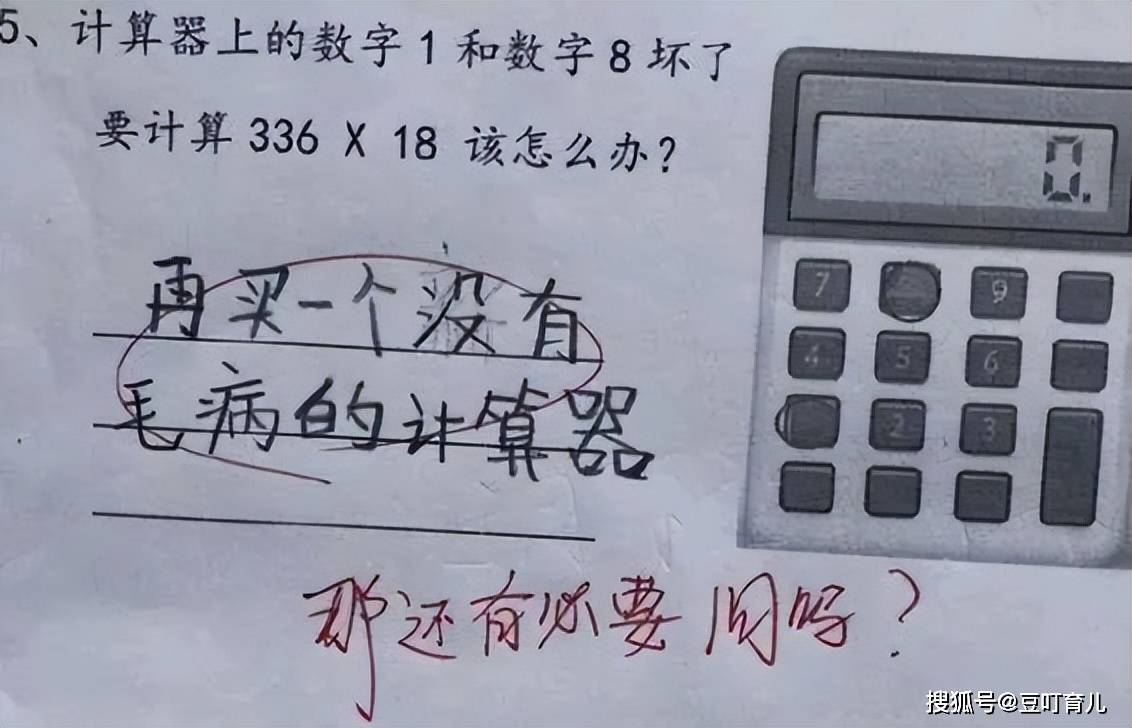 5、计算器上的数字1和数字8坏了
要计算336 X 18 该怎么办?
再买一个没有
毛病的计算器
那还有必要问吗?
0.
7 9
4 5 6
2 3
搜狐号@豆叮育儿